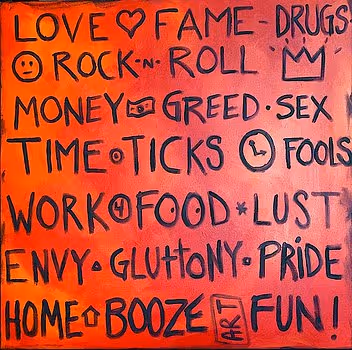 LOVE ♡ FAME - DRUGS
ROCK-N-ROLL
MONEY GREED • SEX
TIME • TICKS FOOLS
WORK 4 FOOD * LUST
ENVY • GLUttONY • PRiDE
HOME BOOZE ART FUN!